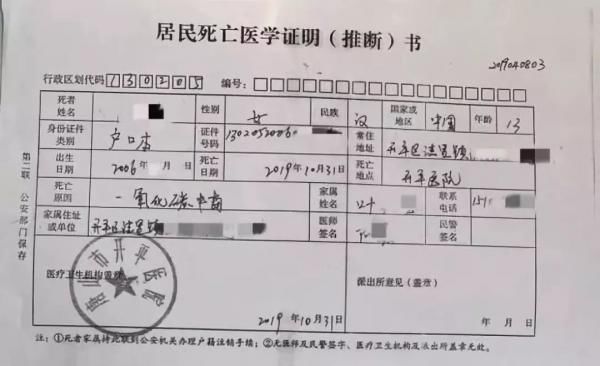 居民死亡医学证明（推断）书
2019040803
行政区划代码 130205 编号：
死者姓名 性别 女 民族 汉 国家或地区 中国 年龄 13
身份证件类别 户口本 证件号码 1302052006 常住地址 开平区洼里镇
出生日期 2006年 月 日 死亡日期 2019年10月31日 死亡地点 开平医院
死亡原因 一氧化碳中毒 家属姓名 叶 联系电话 151
家属住址或单位 开平区洼里镇 医师签名 民警签名
医疗卫生机构盖章
唐山市开平医院
2019年10月31日
派出所意见（盖章）
年 月 日
第二联 公安部门保存
注：①死者家属持此联到公安机关办理户籍注销手续；②无医师及民警签字、医疗卫生机构及派出所盖章无效。